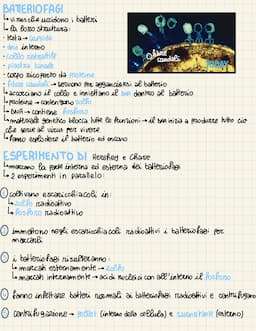 BATTERIOFAGI
↳ virus che uccidono i batteri
↳ la loro struttura:
• testa → capside
• dna interno
• collo retrattile
• piastra basale
• corpo ricoperto da proteine
• fibre caudali → servono per agganciarsi al batterio
↳ accorciano il collo e iniettano il DNA dentro al batterio
↳ proteine → contengono zolfo
↳ DNA → contiene fosforo
↳ materiale genetico blocca tutte le funzioni → il DNA inizia a produrre tutto ciò
che serve al virus per vivere
↳ fanno esplodere il batterio ed escono
fibre
caudali
ESPERIMENTO DI Hershey e Chase
↳ marcano la parte interna ed esterna dei batteriofagi
↳ 2 esperimenti in parallelo
① coltivano escherichia coli in:
↳ zolfo radioattivo
↳ fosforo radioattivo
② immettono negli escherichia coli radioattivi i batteriofagi per
marcarli
③ i batteriofagi risulteranno:
↳ marcati esternamente → zolfo
↳ marcati internamente → acidi nucleici con all'interno il fosforo
④ fanno infettare batteri normali ai batteriofagi radioattivi e centrifugano
⑤ centrifugazione → pellet (interno della cellula) e surnatante (esterno)